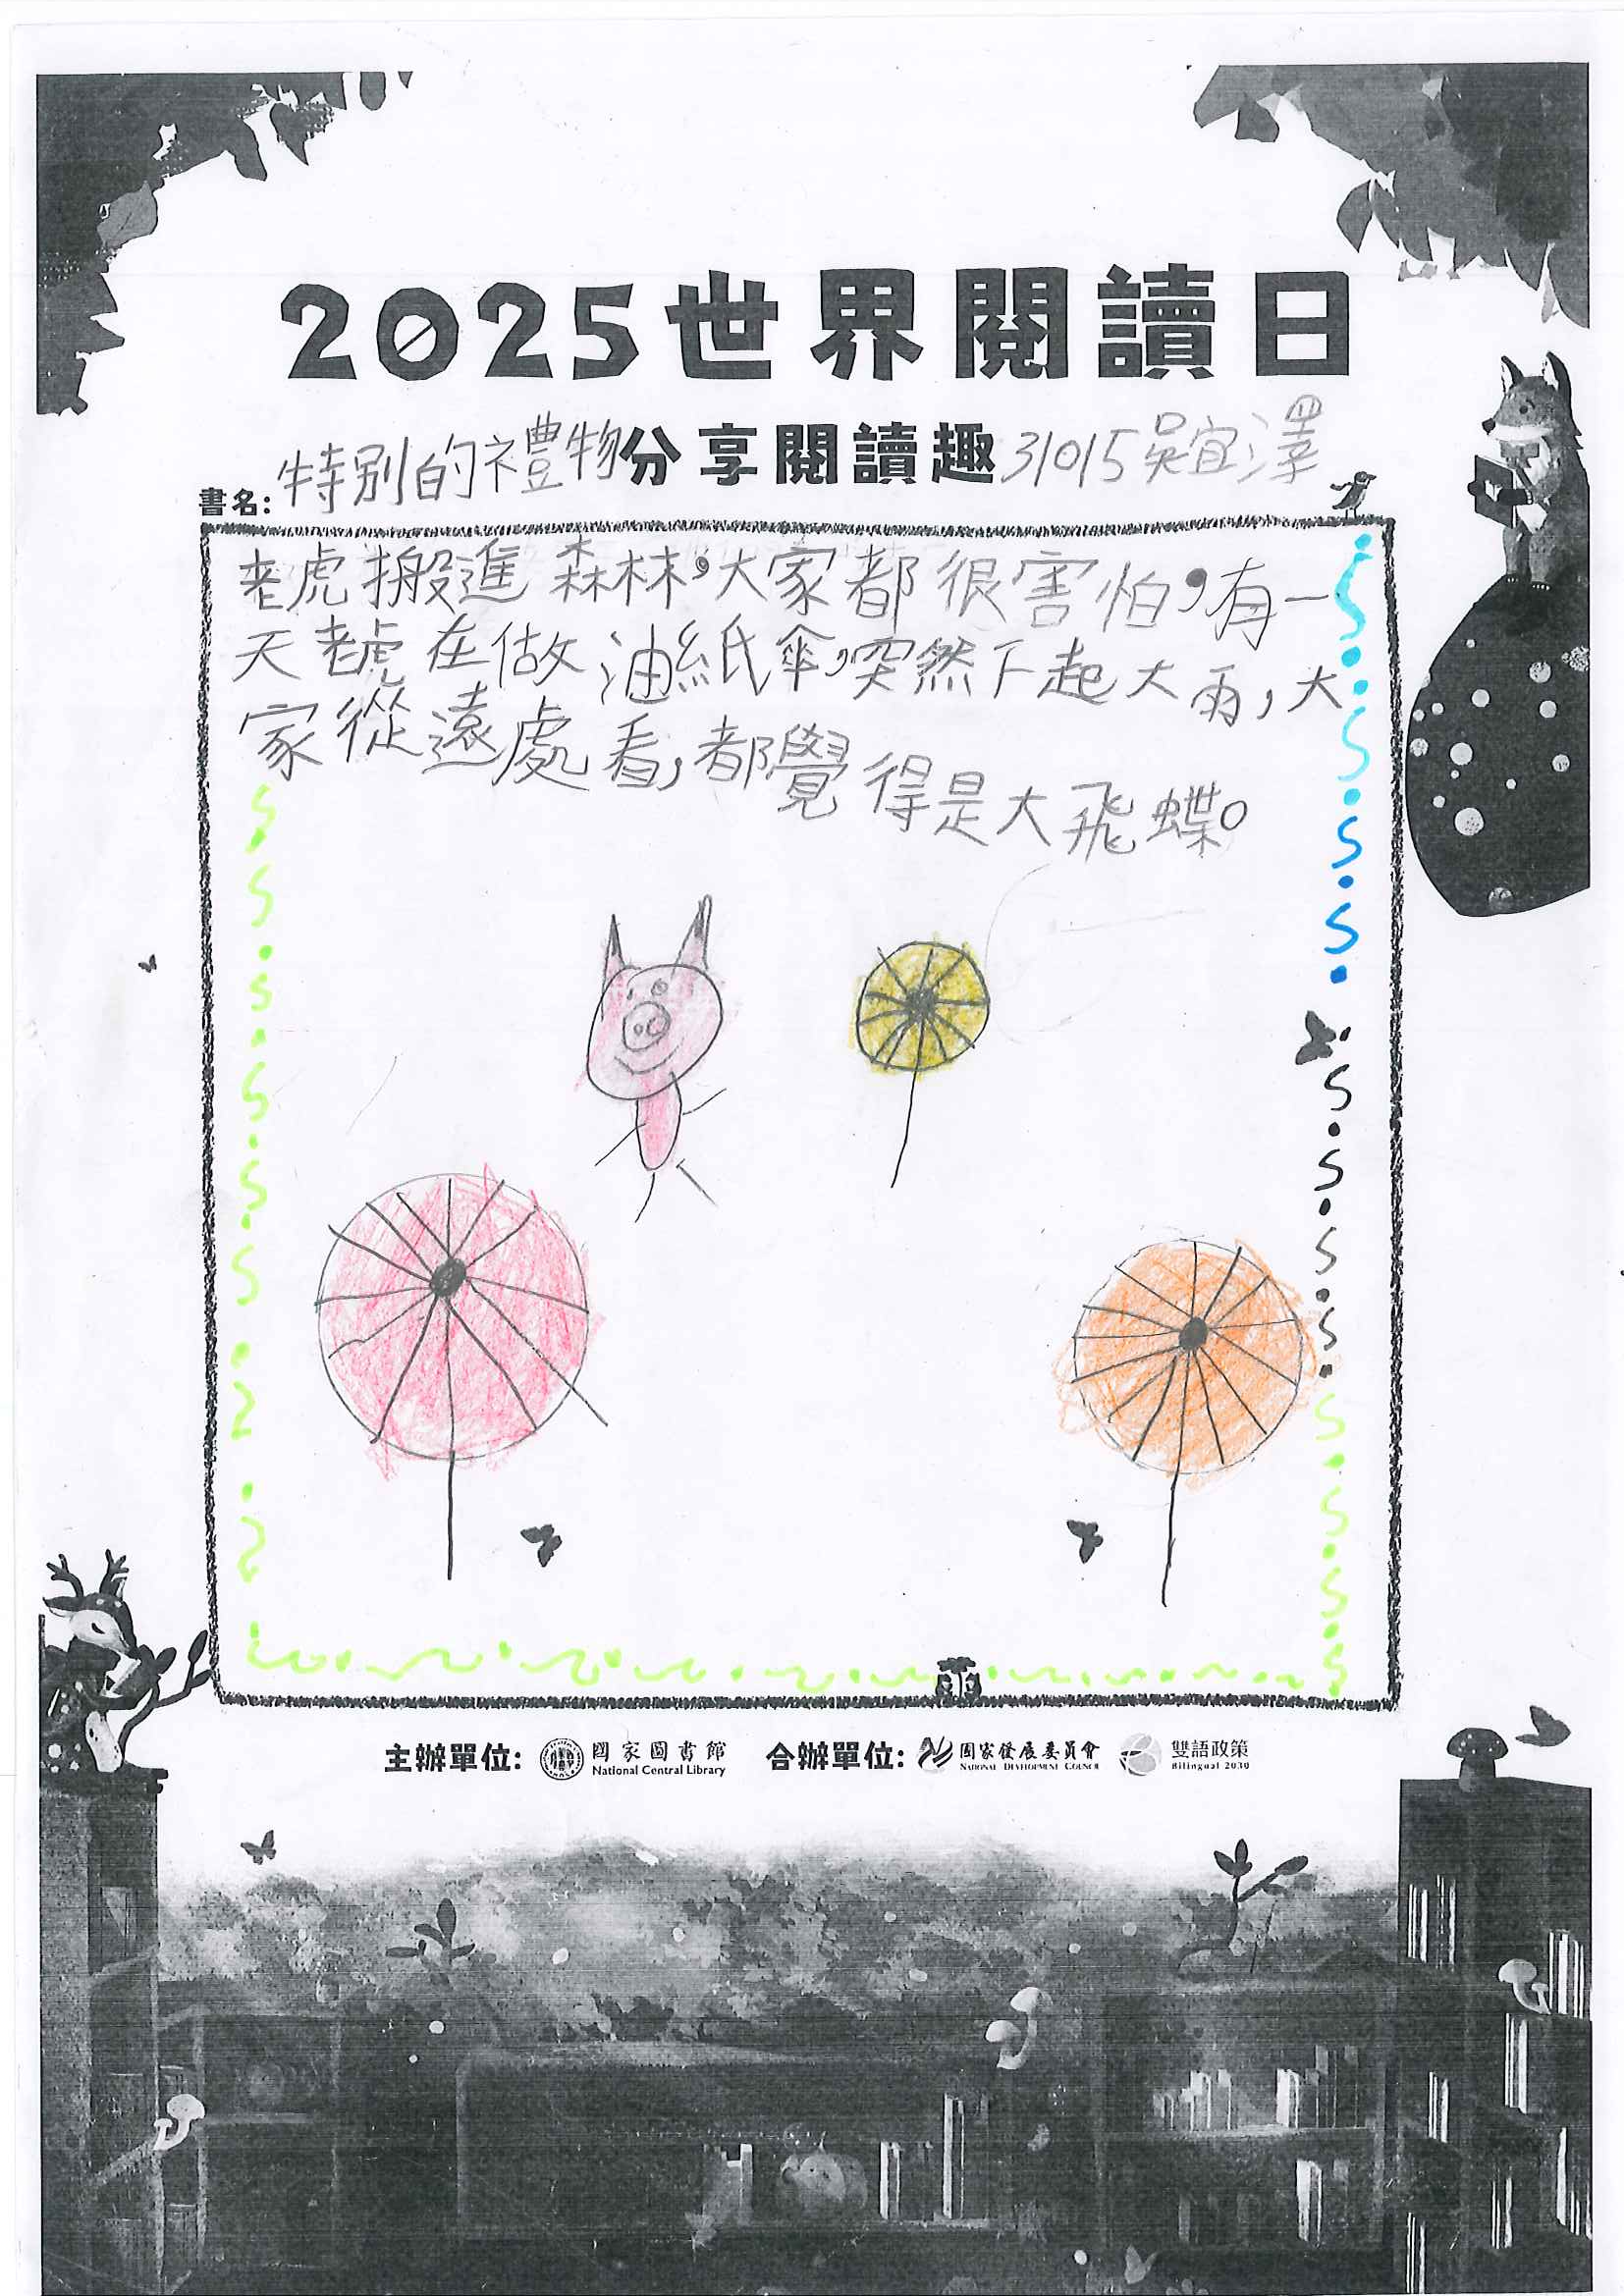 2025世界閱讀日
特別的禮物分享閱讀趣31015吳宜澤
書名:
老虎搬進森林,大家都很害怕,有一
天老虎在做油紙傘,突然下起大雨,大
家從遠處看,都覺得是大飛蝶。
主辦單位: 國家圖書館 合辦單位: 國家發展委員會 雙語政策
National Central Library NATIONAL DEVELOPMENT COUNCIL Bilingual 2030